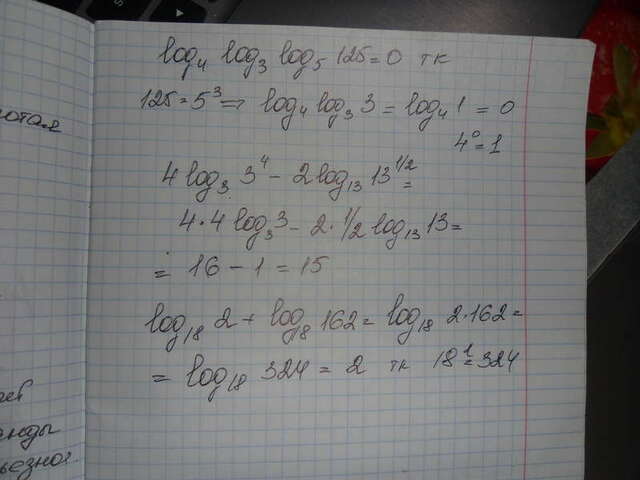 log₄ log₃ log₅ 125 = 0 тк
125 = 5³ ⇒ log₄ log₃ 3 = log₄ 1 = 0
4⁰ = 1
4 log₃ 3⁴ - 2 log₁₃ 13^1/2 =
4 · 4 log₃ 3 - 2 · 1/2 log₁₃ 13 =
= 16 - 1 = 15
log₁₈ 2 + log₁₈ 162 = log₁₈ 2 · 162 =
= log₁₈ 324 = 2 тк 18² = 324